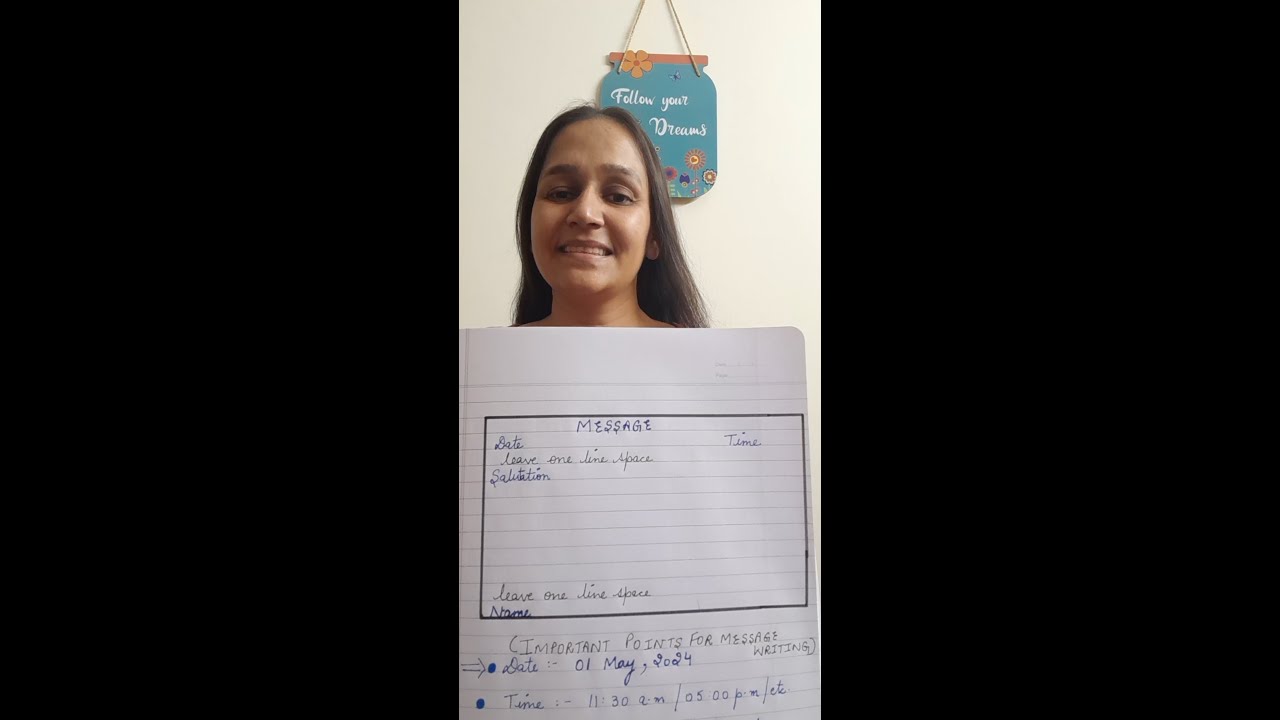 Follow your
Dreams
Date
Page
MESSAGE
Date Time
leave one line space
Salutation
leave one line space
Name
(IMPORTANT POINTS FOR MESSAGE
WRITING)
⇒ • Date :- 01 May, 2024
• Time :- 11:30 a.m / 05:00 p.m / etc.